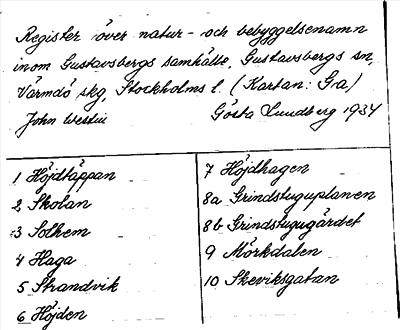 Register över natur- och bebyggelsenamn
inom Gustavsbergs samhälle, Gustavsbergs sn,
Värmdö skg, Stockholms l. (Kartan: Ga)
John Westin Gösta Lundberg 1934
1 Höjdtäppan
2 Skolan
3 Solhem
4 Haga
5 Strandvik
6 Höjden
7 Höjdhagen
8a Grindstuguplanen
8b Grindstugugärdet
9 Mörkdalen
10 Skeviksgatan